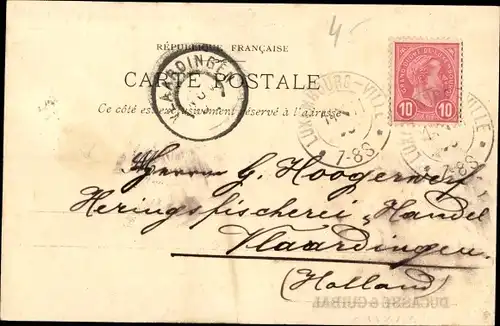 4-
RÉPUBLIQUE FRANÇAISE
CARTE POSTALE
Ce côté est exclusivement réservé à l'adresse
VLAARDINGEN
LUXEMBOURG-VILLE
7-8S
LUXEMBOURG-VILLE
7-8S
10 10
Herrn G. Hoogerwerf
Heringsfischerei & Handel
Vlaardingen
(Holland)
DUCASSE & GUIBAL